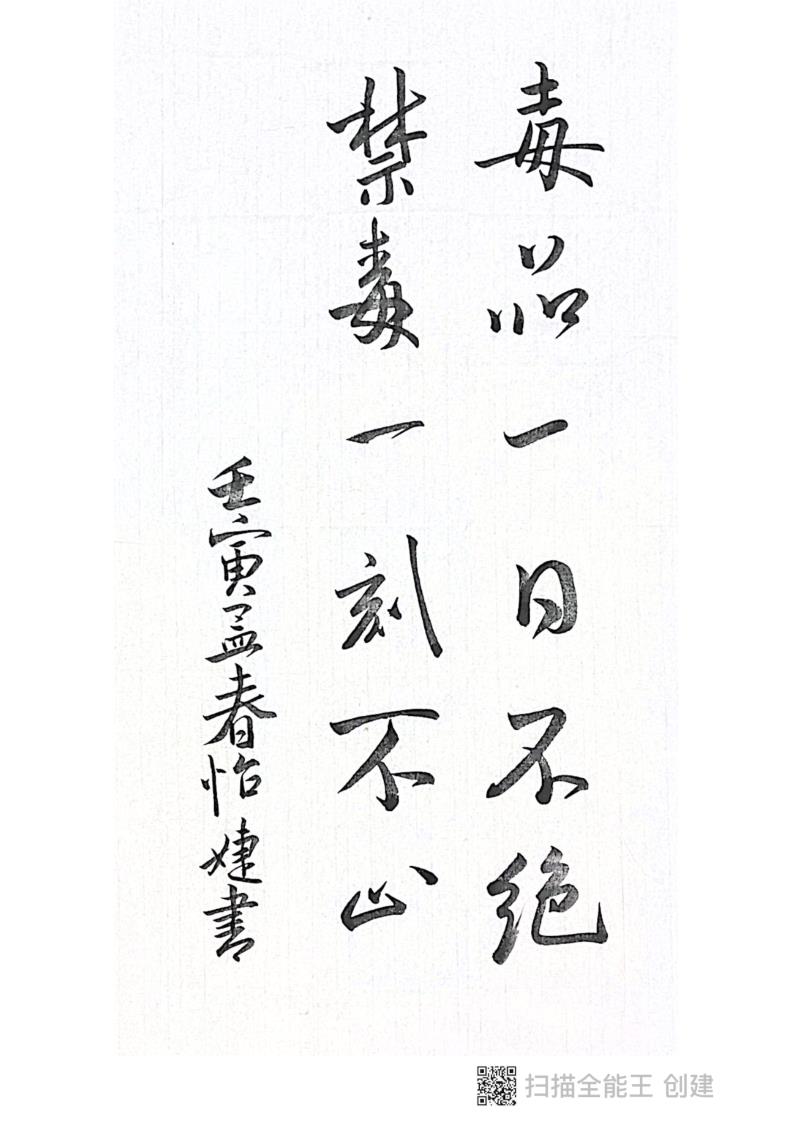 毒品一日不绝
禁毒一刻不止
壬寅孟春怡婕书
扫描全能王 创建